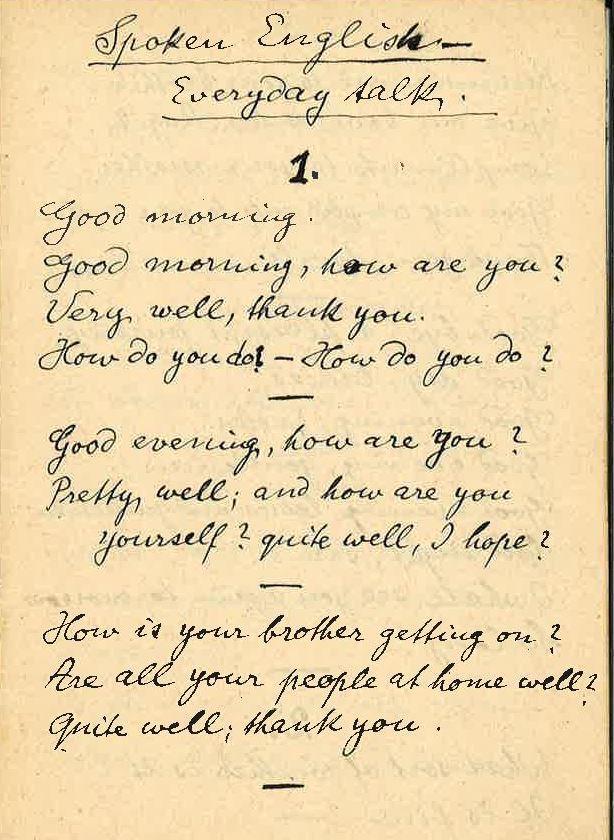 Spoken English –
Everyday talk.
1.
Good morning.
Good morning, how are you?
Very well, thank you.
How do you do? – How do you do?
—
Good evening, how are you?
Pretty well; and how are you
yourself? quite well, I hope?
—
How is your brother getting on?
Are all your people at home well?
Quite well; thank you.
—